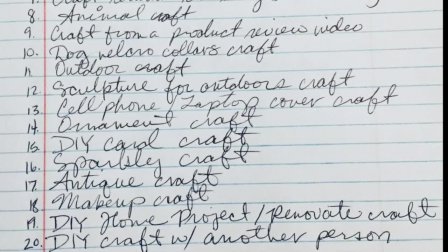 7. Craft
8. Animal craft
9. Craft from a product review video
10. Dog velcro collars craft
11. Outdoor craft
12. Sculpture for outdoors craft
13. Cell phone/Laptop cover craft
14. Ornament craft
15. DIY card craft
16. Sparkley craft
17. Antique craft
18 Makeup craft
19. DIY Home Project/renovate craft
20. DIY craft w/ another person